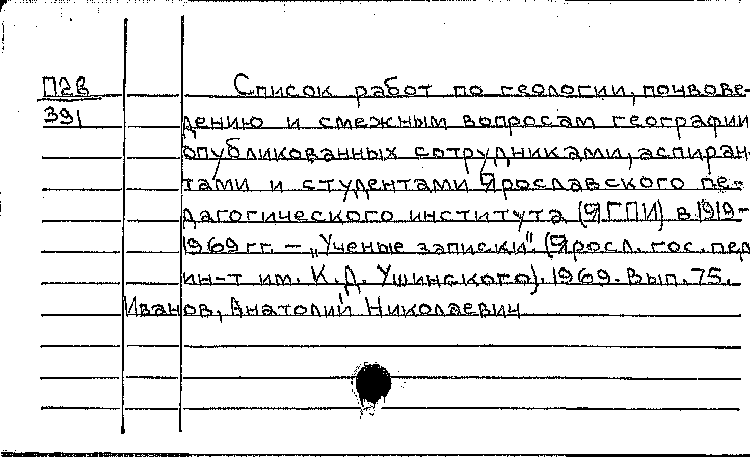 П28 Список работ по геологии, почвове-
391 дению и смежным вопросам географии
опубликованных сотрудниками, аспиран-
тами и студентами Ярославского пе-
дагогического института (ЯГПИ) в 1919-
1969 гг. – „Ученые записки". (Яросл. гос. пед
ин-т им. К.Д. Ушинского). 1969. Вып. 75.
Иванов, Анатолий Николаевич